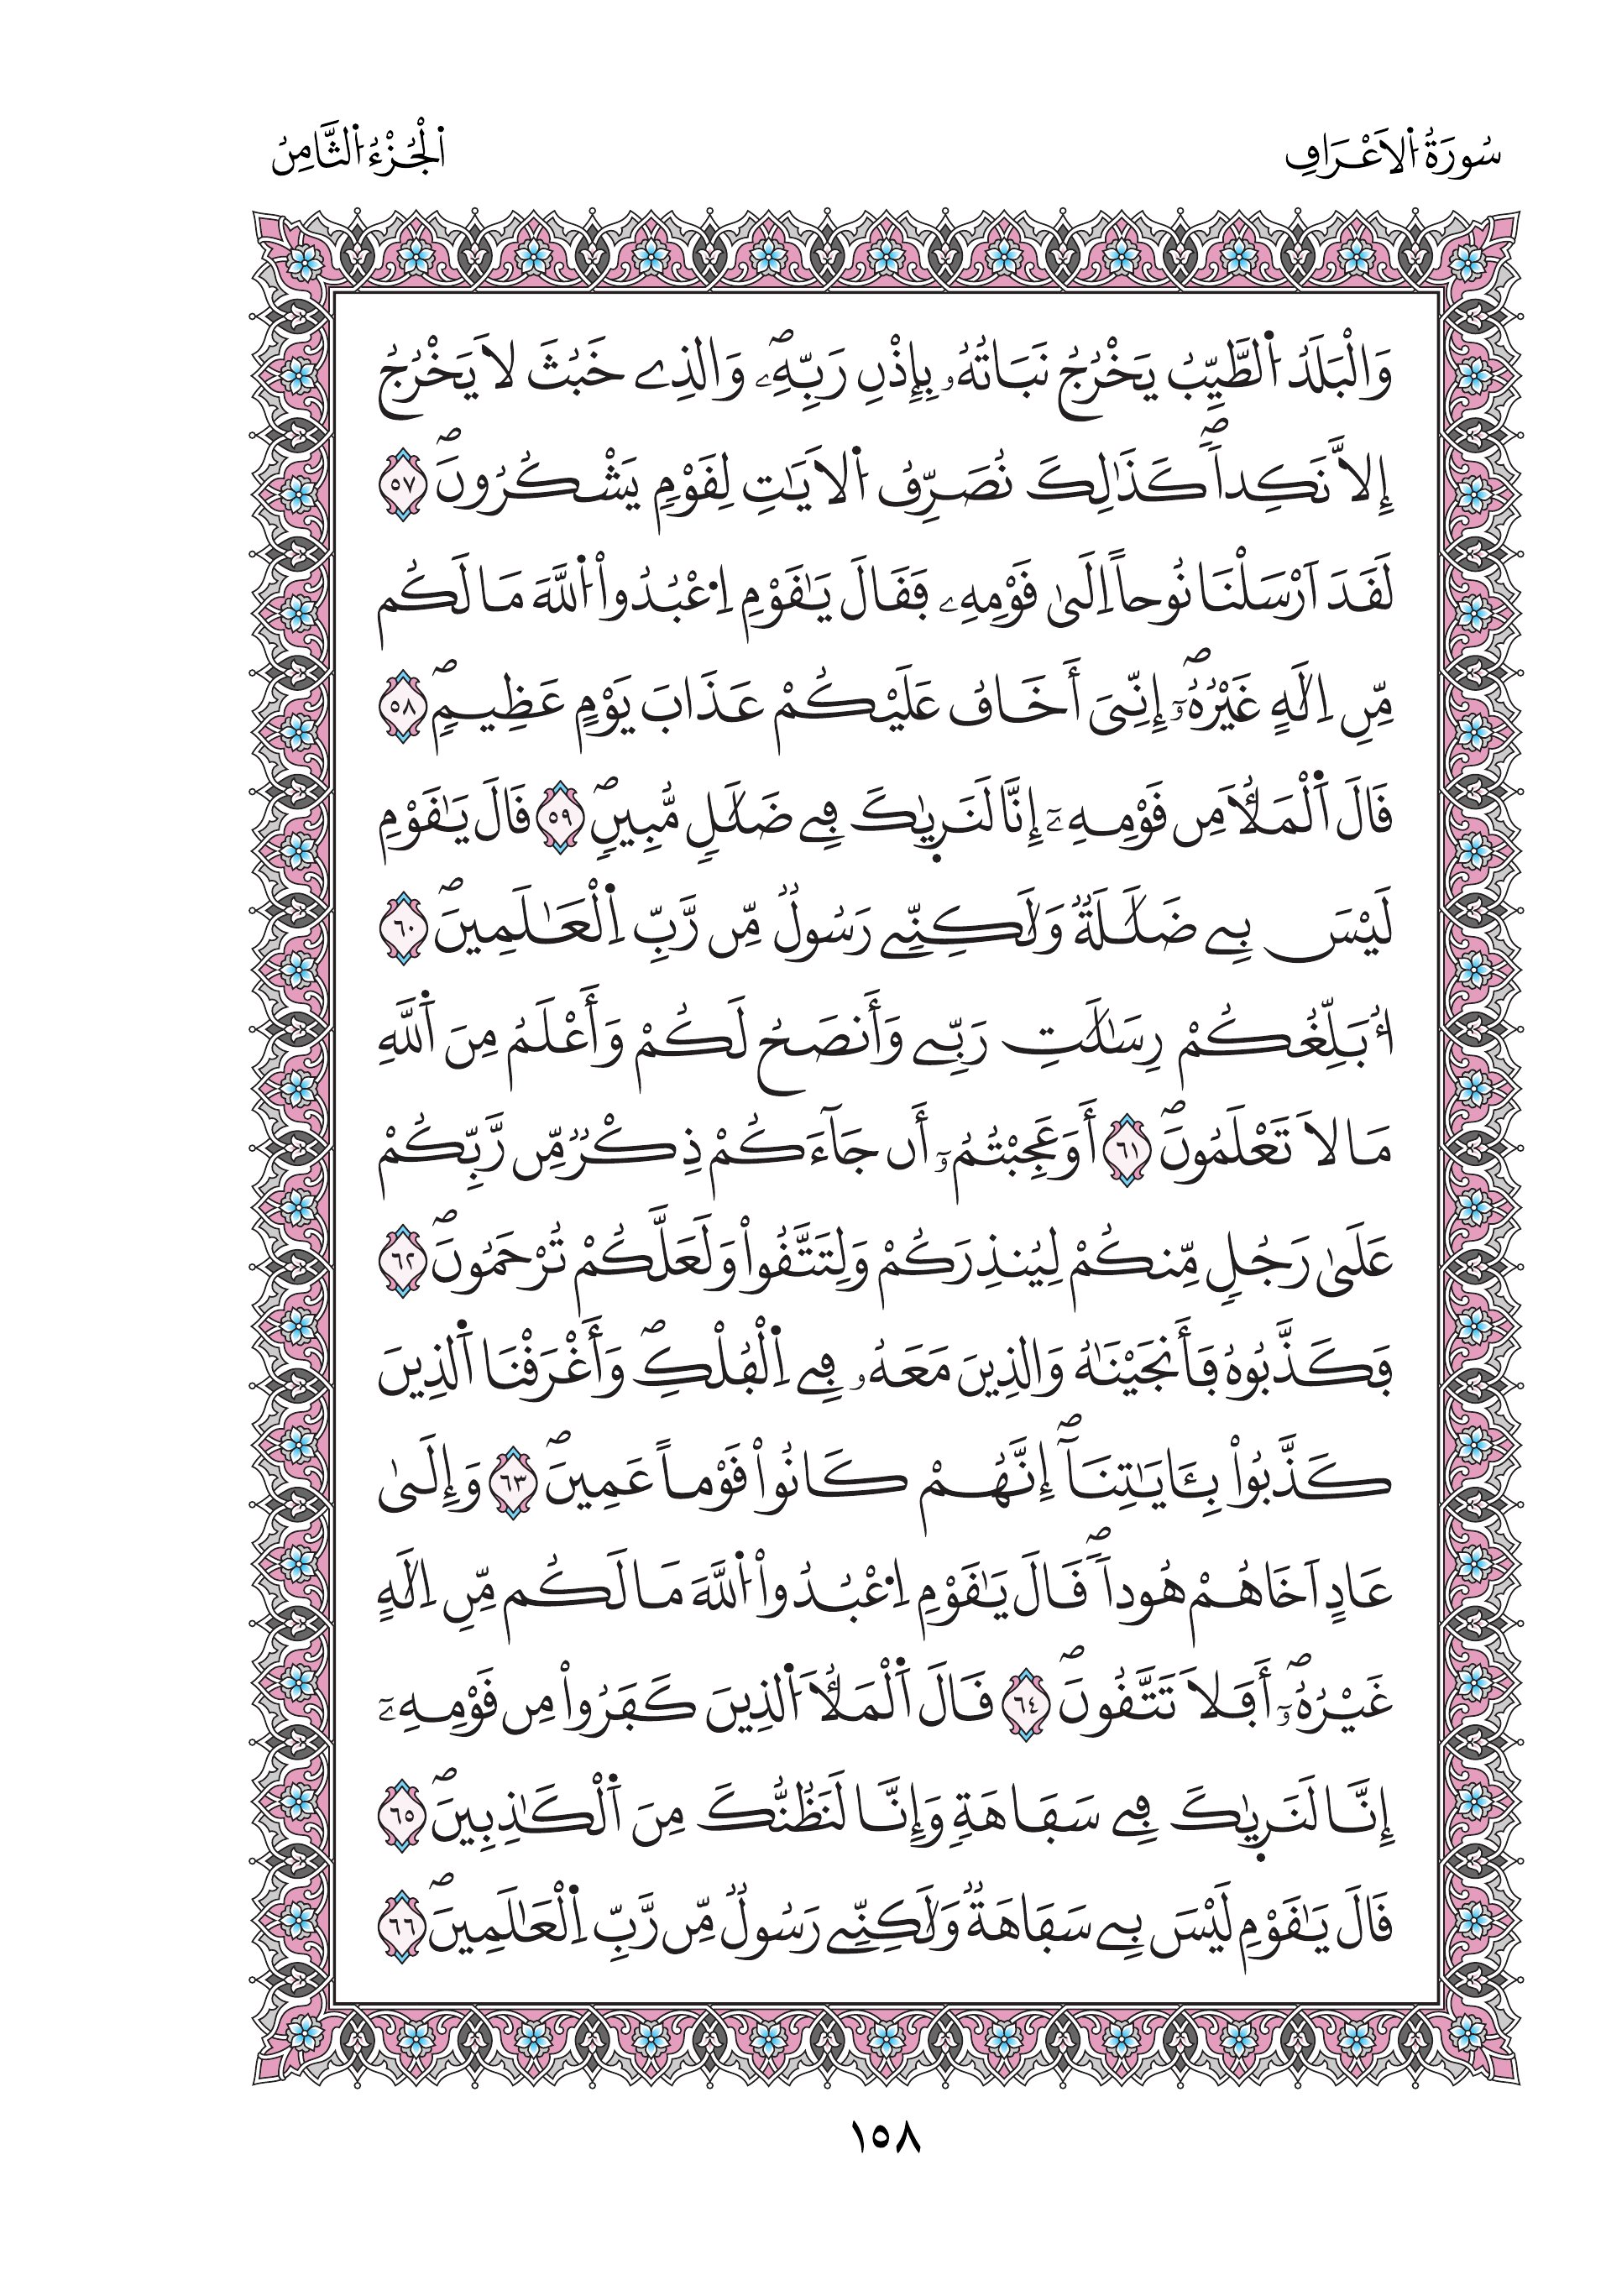 سُورَةُ الاَعْرَافِ
الْجُزْءُ الثَّامِنُ
وَالْبَلَدُ اُلطَّيِّبُ يَخْرُجُ نَبَاتُهُۥ بِإِذْنِ رَبِّهِۦۖ وَالذِے خَبُثَ لَا يَخْرُجُ
إِلَّا نَكِداٗۖ كَذَٰلِكَ نُصَرِّفُ اُلَايَٰتِ لِقَوْمٖ يَشْكُرُونَۖ ٥٧
لَقَدَ اَرْسَلْنَا نُوحاً اِلَىٰ قَوْمِهِۦ فَقَالَ يَٰقَوْمِ اِ۟عْبُدُواْ اُللَّهَ مَا لَكُم
مِّنِ اِلَٰهٍ غَيْرُهُۥٓۖ إِنِّيَ أَخَافُ عَلَيْكُمْ عَذَابَ يَوْمٍ عَظِيمٖۖ ٥٨
قَالَ اَلْمَلَأُ مِن قَوْمِهِۦٓ إِنَّا لَنَرۭىٰكَ فِے ضَلَٰلٖ مُّبِينٖۖ ٥٩ قَالَ يَٰقَوْمِ
لَيْسَ بِے ضَلَٰلَةٞ وَلَٰكِنِّے رَسُولٞ مِّن رَّبِّ اِلْعَٰلَمِينَۖ ٦٠
أُبَلِّغُكُمْ رِسَٰلَٰتِ رَبِّے وَأَنصَحُ لَكُمْ وَأَعْلَمُ مِنَ اَللَّهِ
مَا لَا تَعْلَمُونَۖ ٦١ أَوَعَجِبْتُمُۥٓ أَن جَآءَكُمْ ذِكْرٞ مِّن رَّبِّكُمْ
عَلَىٰ رَجُلٖ مِّنكُمْ لِيُنذِرَكُمْ وَلِتَتَّقُواْ وَلَعَلَّكُمْ تُرْحَمُونَۖ ٦٢
فَكَذَّبُوهُ فَأَنجَيْنَٰهُ وَالذِينَ مَعَهُۥ فِے اِلْفُلْكِۖ وَأَغْرَقْنَا اَلذِينَ
كَذَّبُواْ بِـَٔايَٰتِنَآۖ إِنَّهُمْ كَانُواْ قَوْماً عَمِينَۖ ٦٣ وَإِلَىٰ
عَادٍ اَخَاهُمْ هُوداٗۖ قَالَ يَٰقَوْمِ اِ۟عْبُدُواْ اُللَّهَ مَا لَكُم مِّنِ اِلَٰهٍ
غَيْرُهُۥٓۖ أَفَلَا تَتَّقُونَۖ ٦٤ قَالَ اَلْمَلَأُ اُلذِينَ كَفَرُواْ مِن قَوْمِهِۦٓ
إِنَّا لَنَرۭىٰكَ فِے سَفَاهَةٖ وَإِنَّا لَنَظُنُّكَ مِنَ اَلْكَٰذِبِينَۖ ٦٥
قَالَ يَٰقَوْمِ لَيْسَ بِے سَفَاهَةٞ وَلَٰكِنِّے رَسُولٞ مِّن رَّبِّ اِلْعَٰلَمِينَۖ ٦٦
١٥٨